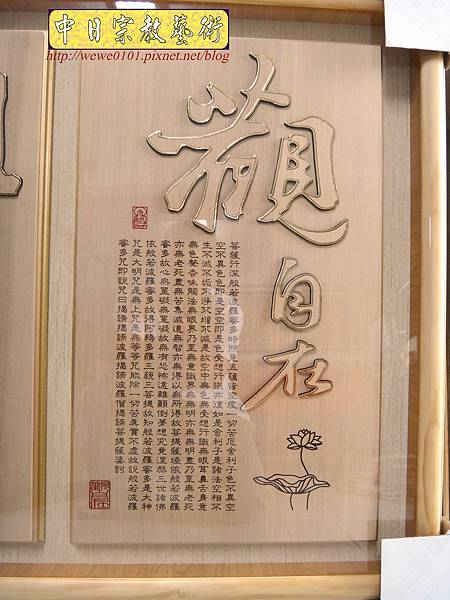 中日宗教藝術
http://wewe0101.pixnet.net/blog
觀自在
菩薩行深般若波羅蜜多時照見五蘊皆空度一切苦厄舍利子色不異空
空不異色色即是空空即是色受想行識亦復如是舍利子是諸法空相不
生不滅不垢不淨不增不減是故空中無色無受想行識無眼耳鼻舌身意
無色聲香味觸法無眼界乃至無意識界無無明亦無無明盡乃至無老死
亦無老死盡無苦集滅道無智亦無得以無所得故菩提薩埵依般若波羅
蜜多故心無罣礙無罣礙故無有恐怖遠離顛倒夢想究竟涅槃三世諸佛
依般若波羅蜜多故得阿耨多羅三藐三菩提故知般若波羅蜜多是大神
咒是大明咒是無上咒是無等等咒能除一切苦真實不虛故說般若波羅
蜜多咒即說咒曰揭諦揭諦波羅揭諦波羅僧揭諦菩提薩婆訶